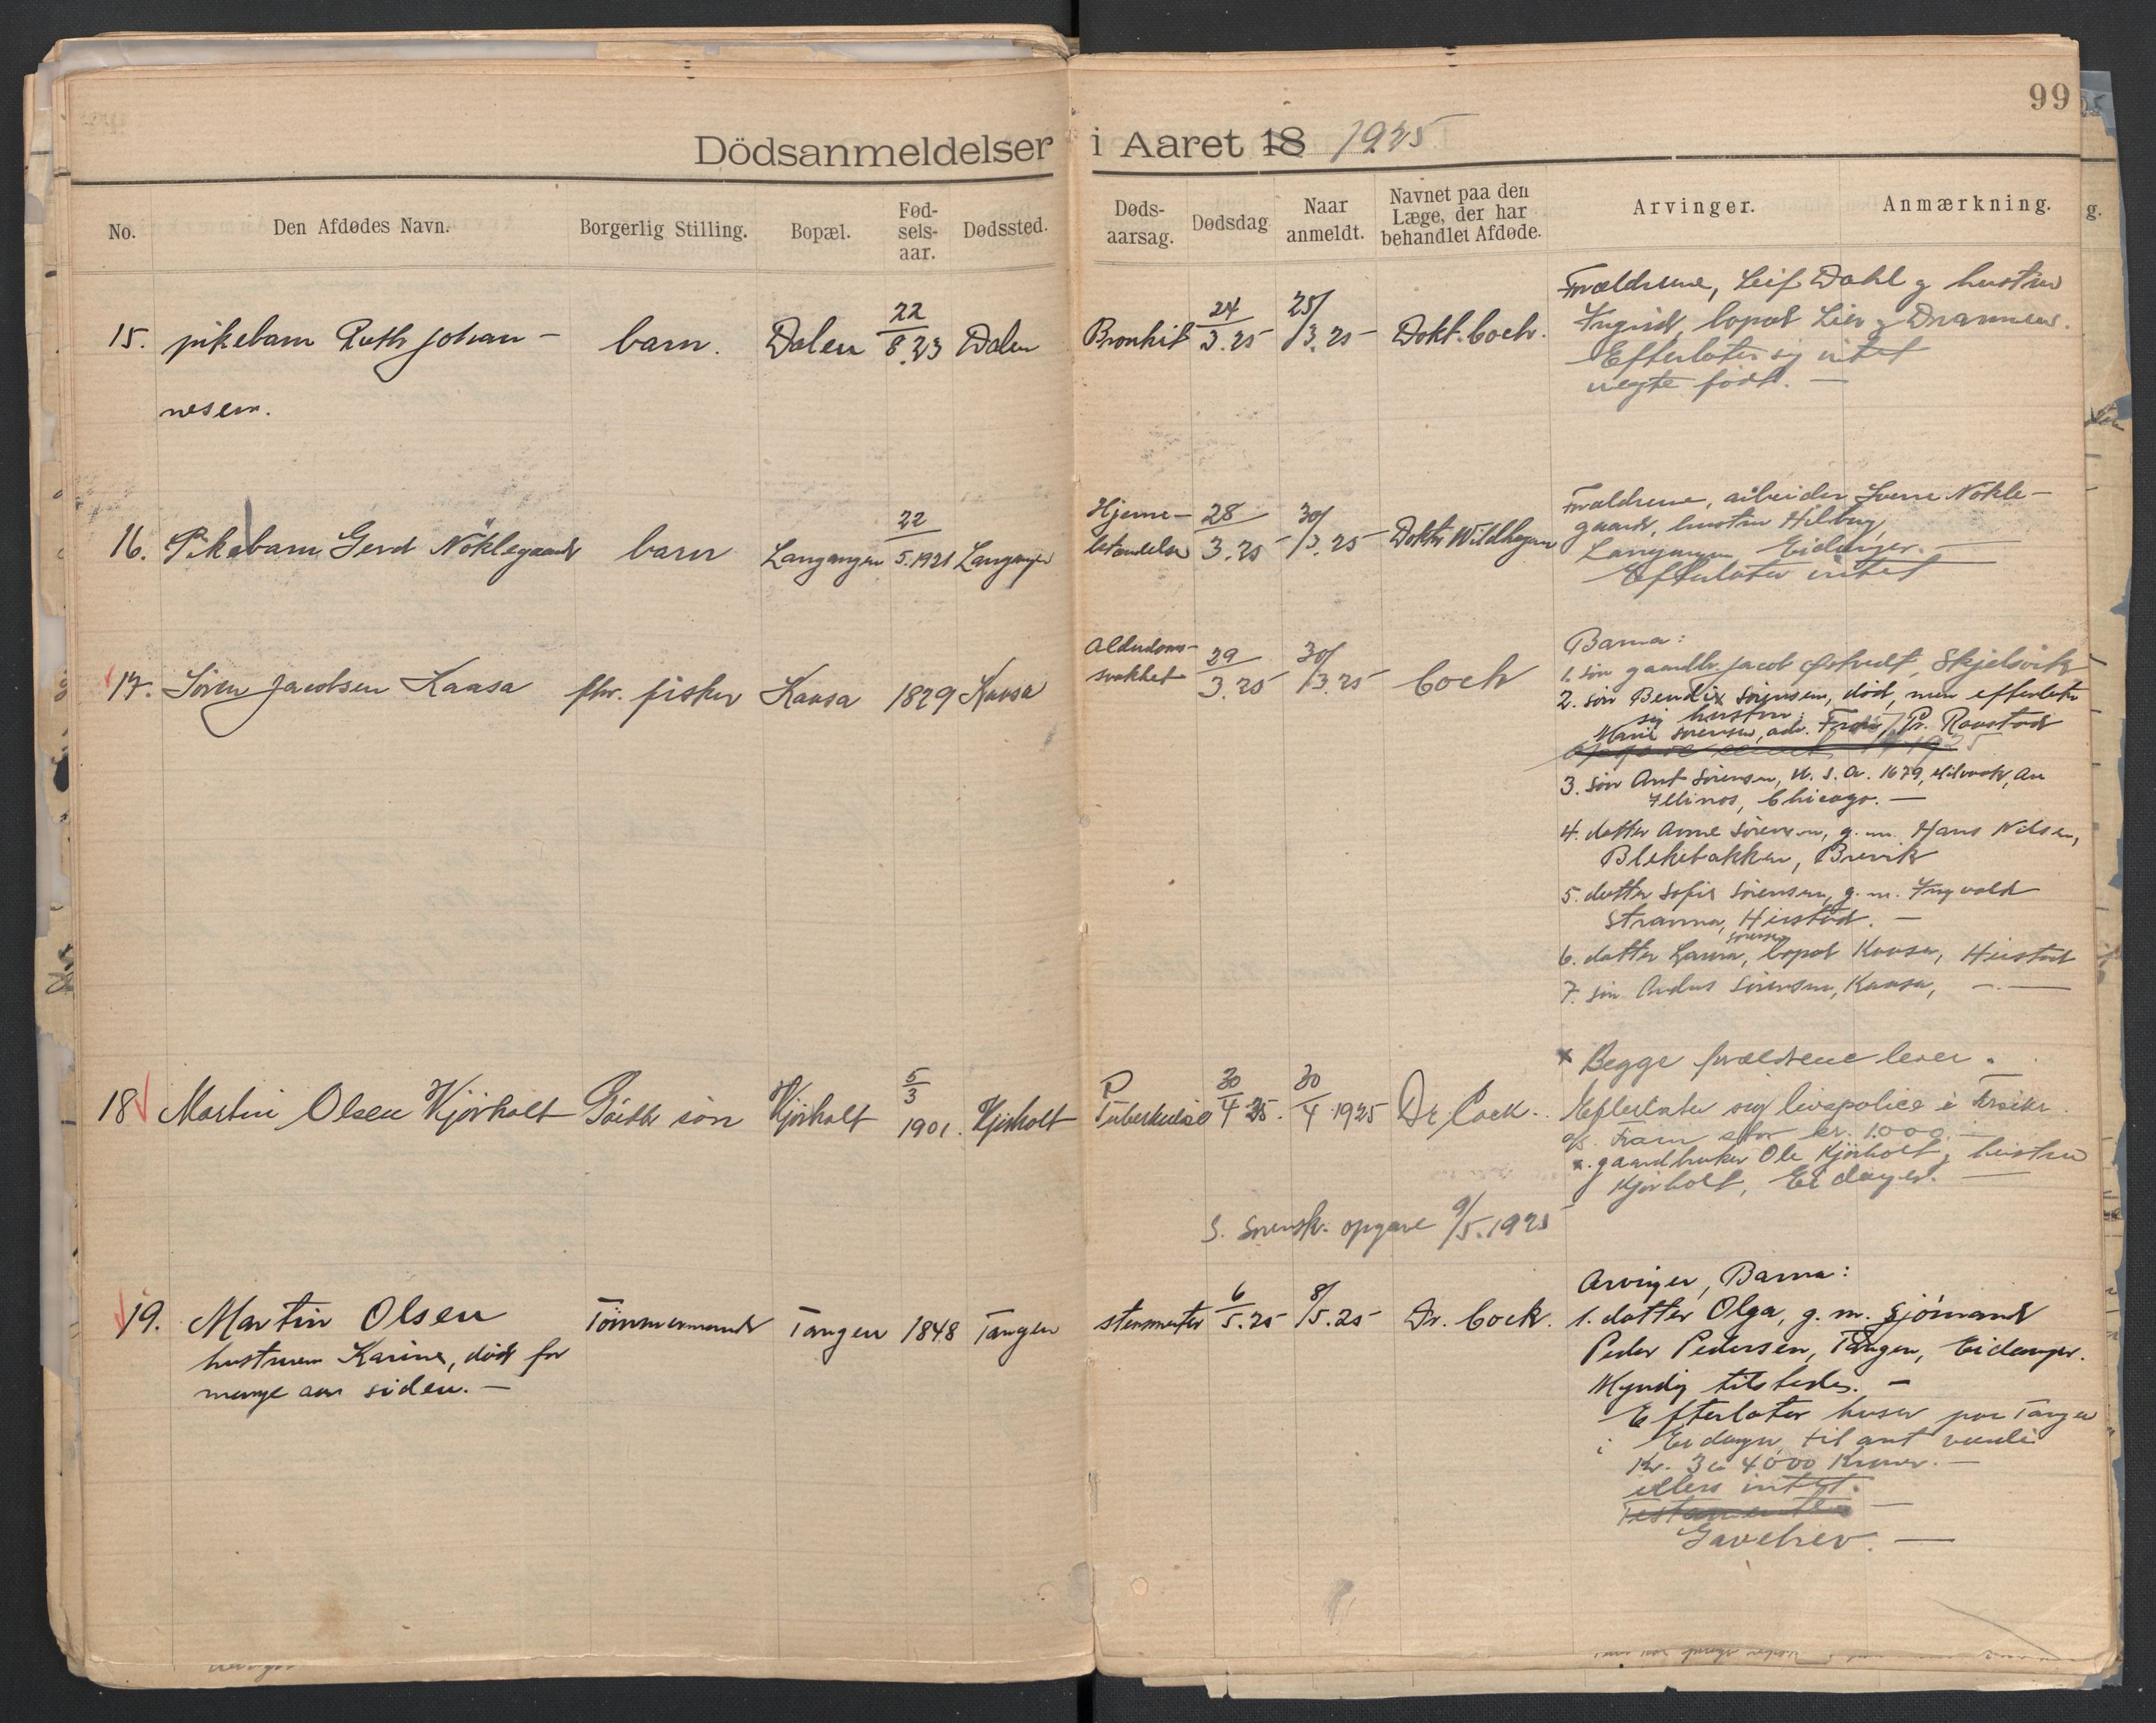 99
Dödsanmeldelser i Aaret 18 1925
No. Den Afdødes Navn. Borgerlig Stilling. Bopæl. Fød-sels-aar. Dødssted. Døds-aarsag. Dødsdag Naar anmeldt. Navnet paa den Læge, der har behandlet Afdøde. Arvinger. Anmærkning.
15. pikebarn Ruth Johan-
nesen.
barn. Dalen 22/8.23 Dalen
Bronkit 24/3.25 25/3.25 Dokt. Coch.
Forældrene, Leif Dahl g hustru
Ingrid, bopæl Lier g Drammen.
Efterlater sig intet
uegte født. —
16. Pikebarn Gerd Nöklegaard barn Langangen 22/5.1921 Langangen
Hjerne-
betændelse 28/3.25 30/3.25 Doktor Wildhagen
Forældrene, arbeider Sverre Nökle-
gaard, hustru Hilborg,
Langangen, Eidanger. —
Efterlater intet
17. Sören Jacobsen Kaasa fhv. fisker Kaasa 1829 Kaasa
Alderdoms-
svakhet 29/3.25 30/3.25 Coch
Barna:
1. sön gaardbr. Jacob Skjelsvik
2. sön Bendix Sörensen, död, men efterlater
sig hustru:
Marie Sörensen, adr. Pr. Raastad
3. sön Ant Sörensen, U. S. A. 1679, Av
Illinos, Chicago. —
4. datter Anne Sörensen, g. m. Hans Nilsen,
Blekebakken, Brevik
5. datter Sofie Sörensen, g. m. Ingvald
Stranna, Heistad. —
6. datter Laura, Sörensen bopæl Kaasa, Heistad
7. sön Anders Sörensen, Kaasa, —.—
x Begge forældrene lever.
18 Martin Olsen Kjörholt Gaardbr. sön Kjörholt 5/3 1901. Kjörholt
Tuberkulose 30/4 25. 30/4 1925 Dr. Cock.
Efterlater sig livspolice i
a/s. Fram stor kr. 1000. —
x. gaardbruker Ole Kjörholt g hustru
Kjörholt, Eidanger. —
S. Sorensk. opgave 9/5.1925
19. Martin Olsen
hustruen Karine, död for
mange aar siden. —
Tömmermand Tangen 1848 Tangen
6/5.25 8/5.25 Dr. Cock.
Arvinger, Barna:
1. datter Olga, g. m. sjömand
Peder Pedersen, Tangen, Eidanger.
Myndig tilstede. —
Efterlater huser paa Tangen
i Eidanger til ant værdi
Kr. 3 a 4000 Kroner. —
ellers intet.
Testamente —
Gavebrev. —